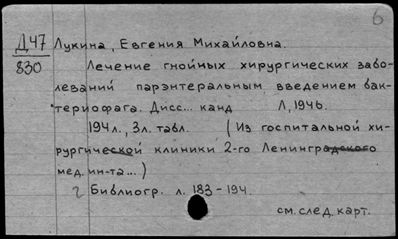 6
Д47 Лукина, Евгения Михайловна.
830
Лечение гнойных хирургических забо-
леваний парэнтеральным введением бак-
териофага. Дисс... канд Л, 1946.
194 л., 3 л. табл. (Из госпитальной хи-
рургической клиники 2-го Ленинградского
мед. ин-та...)
Библиогр. л. 183-194.
см. след. карт.